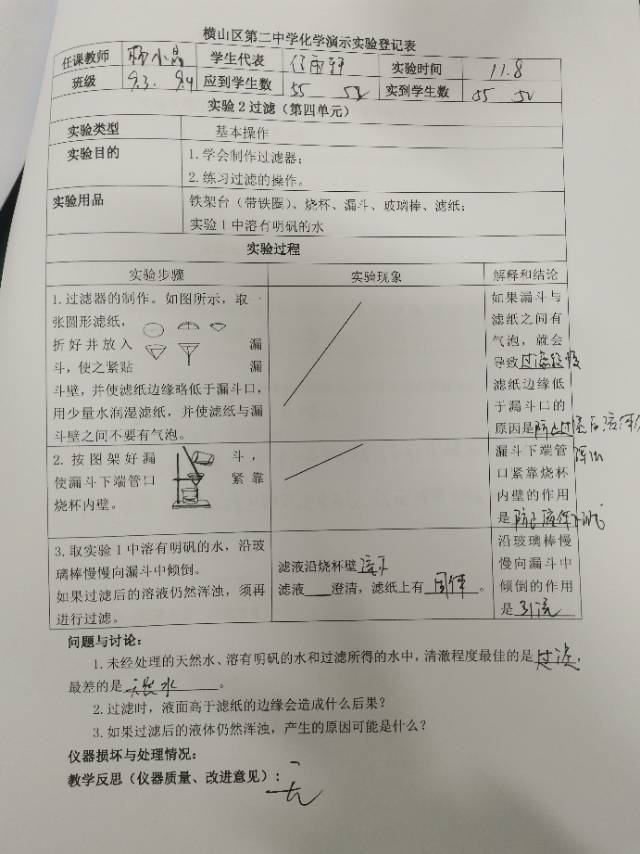 横山区第二中学化学演示实验登记表
任课教师 学生代表 实验时间 11.8
班级 9.3. 9.4 应到学生数 55 52 实到学生数 55 52
实验2过滤（第四单元）
实验类型 基本操作
实验目的 1.学会制作过滤器；
2.练习过滤的操作。
实验用品 铁架台（带铁圈）、烧杯、漏斗、玻璃棒、滤纸；
实验1中溶有明矾的水
实验过程
实验步骤 实验现象 解释和结论
1.过滤器的制作。如图所示，取一
张圆形滤纸，
折好并放入 漏
斗，使之紧贴 漏
斗壁，并使滤纸边缘略低于漏斗口，
用少量水润湿滤纸，并使滤纸与漏
斗壁之间不要有气泡。
如果漏斗与
滤纸之间有
气泡，就会
导致过滤较慢
滤纸边缘低
于漏斗口的
原因是防止过滤后液体
2.按图架好漏 斗，
使漏斗下端管口 紧靠
烧杯内壁。
漏斗下端管
口紧靠烧杯
内壁的作用
是防止液体
3.取实验1中溶有明矾的水，沿玻
璃棒慢慢向漏斗中倾倒。
如果过滤后的溶液仍然浑浊，须再
进行过滤。
滤液沿烧杯壁流下
滤液___澄清，滤纸上有固体。
沿玻璃棒慢
慢向漏斗中
倾倒的作用
是引流
问题与讨论：
1.未经处理的天然水、溶有明矾的水和过滤所得的水中，清澈程度最佳的是过滤，
最差的是天然水。
2.过滤时，液面高于滤纸的边缘会造成什么后果？
3.如果过滤后的液体仍然浑浊，产生的原因可能是什么？
仪器损坏与处理情况：
教学反思（仪器质量、改进意见）：无